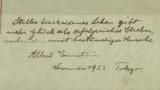 Stilles bescheidenes Leben gibt
mehr Glück als erfolgreiches Streben
verbunden mit beständiger Unruhe.
Albert Einstein
November 1922. Tokyo